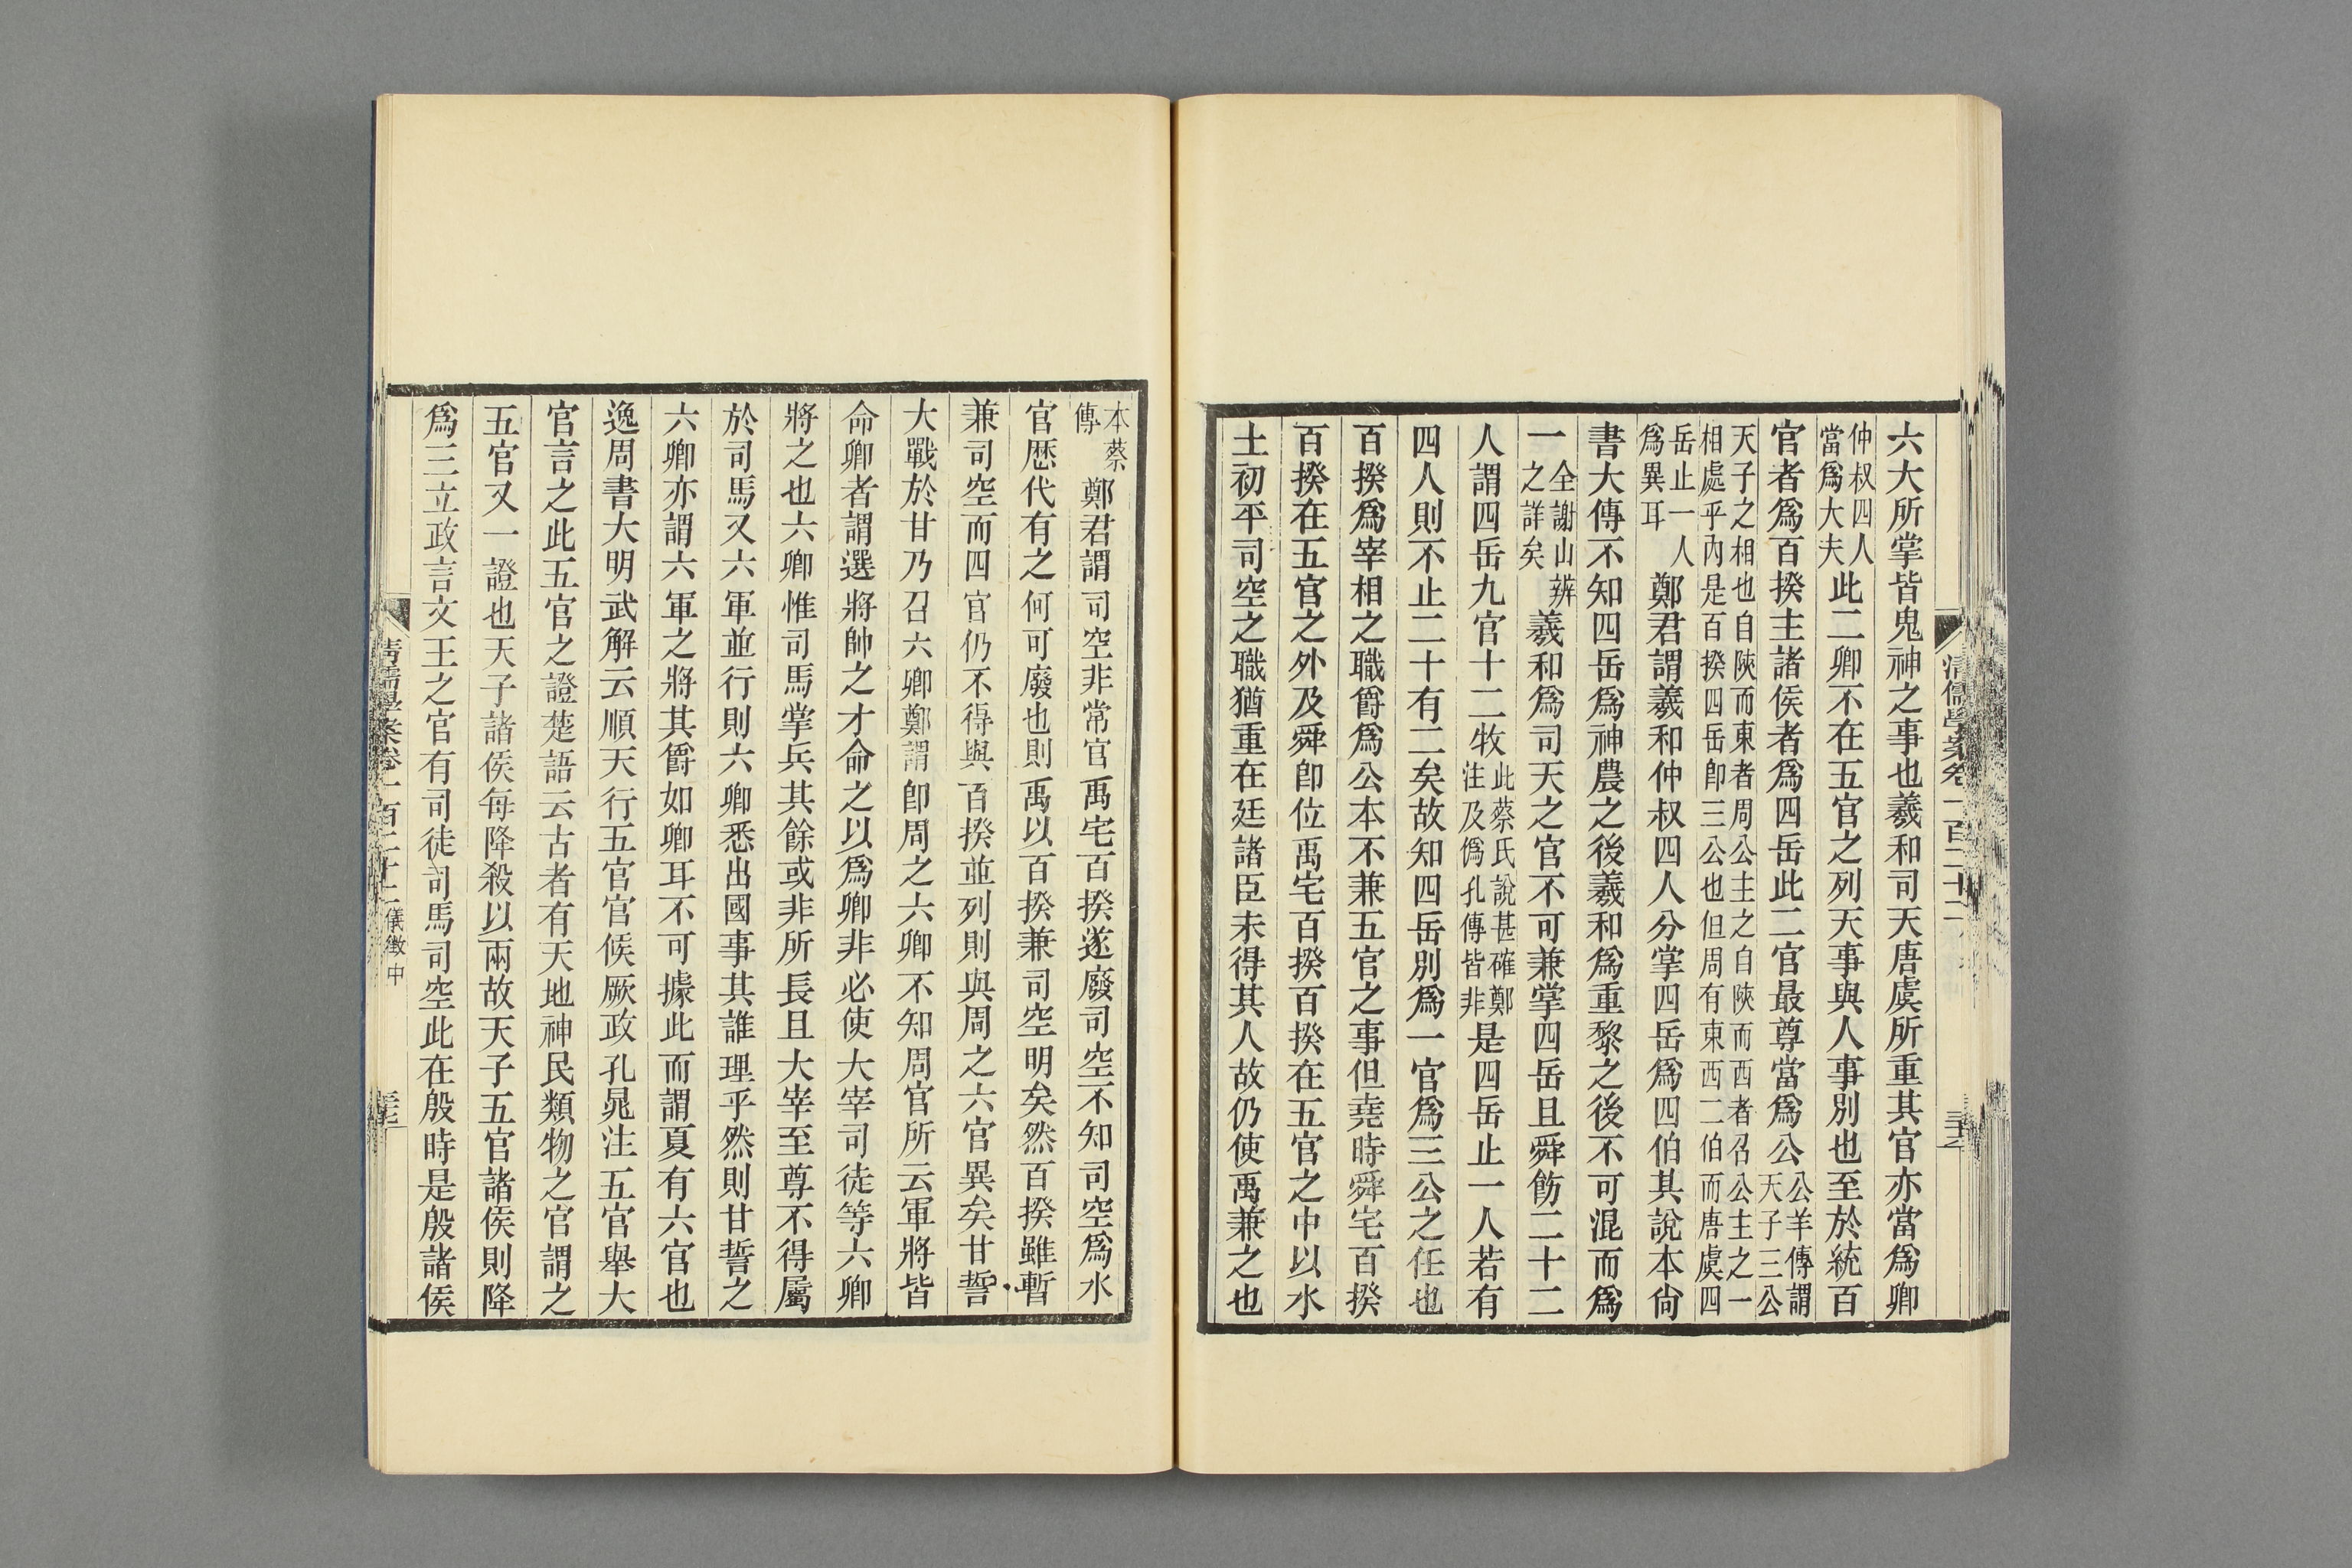 六大所掌皆鬼神之事也羲和司天唐虞所重其官亦當爲卿
仲叔四人
當爲大夫
此二卿不在五官之列天事與人事別也至於統百
官者爲百揆主諸侯者爲四岳此二官最尊當爲公
公羊傳謂
天子三公
天子之相也自陝而東者周公主之自陝而西者召公主之一
相處乎內是百揆四岳卽三公也但周有東西二伯而唐虞四
岳止一人
爲異耳
鄭君謂羲和仲叔四人分掌四岳爲四伯其說本尙
書大傳不知四岳爲神農之後羲和爲重黎之後不可混而爲
一
全謝山辨
之詳矣
羲和爲司天之官不可兼掌四岳且舜飭二十二
人謂四岳九官十二牧
此蔡氏說甚確鄭
注及僞孔傳皆非
是四岳止一人若有
四人則不止二十有二矣故知四岳別爲一官爲三公之任也
百揆爲宰相之職爵爲公本不兼五官之事但堯時舜宅百揆
百揆在五官之外及舜卽位禹宅百揆百揆在五官之中以水
土初平司空之職猶重在廷諸臣未得其人故仍使禹兼之也
清儒學案卷一百二十二
本蔡
傳
鄭君謂司空非常官禹宅百揆遂廢司空不知司空爲水
官歷代有之何可廢也則禹以百揆兼司空明矣然百揆雖暫
兼司空而四官仍不得與百揆並列則與周之六官異矣甘誓
大戰於甘乃召六卿鄭謂卽周之六卿不知周官所云軍將皆
命卿者謂選將帥之才命之以爲卿非必使大宰司徒等六卿
將之也六卿惟司馬掌兵其餘或非所長且大宰至尊不得屬
於司馬又六軍並行則六卿悉出國事其誰理乎然則甘誓之
六卿亦謂六軍之將其爵如卿耳不可據此而謂夏有六官也
逸周書大明武解云順天行五官官候厥政孔晁注五官舉大
官言之此五官之證楚語云古者有天地神民類物之官謂之
五官又一證也天子諸侯每降殺以兩故天子五官諸侯則降
爲三立政言文王之官有司徒司馬司空此在殷時是殷諸侯
清儒學案卷一百二十二 儀徵中